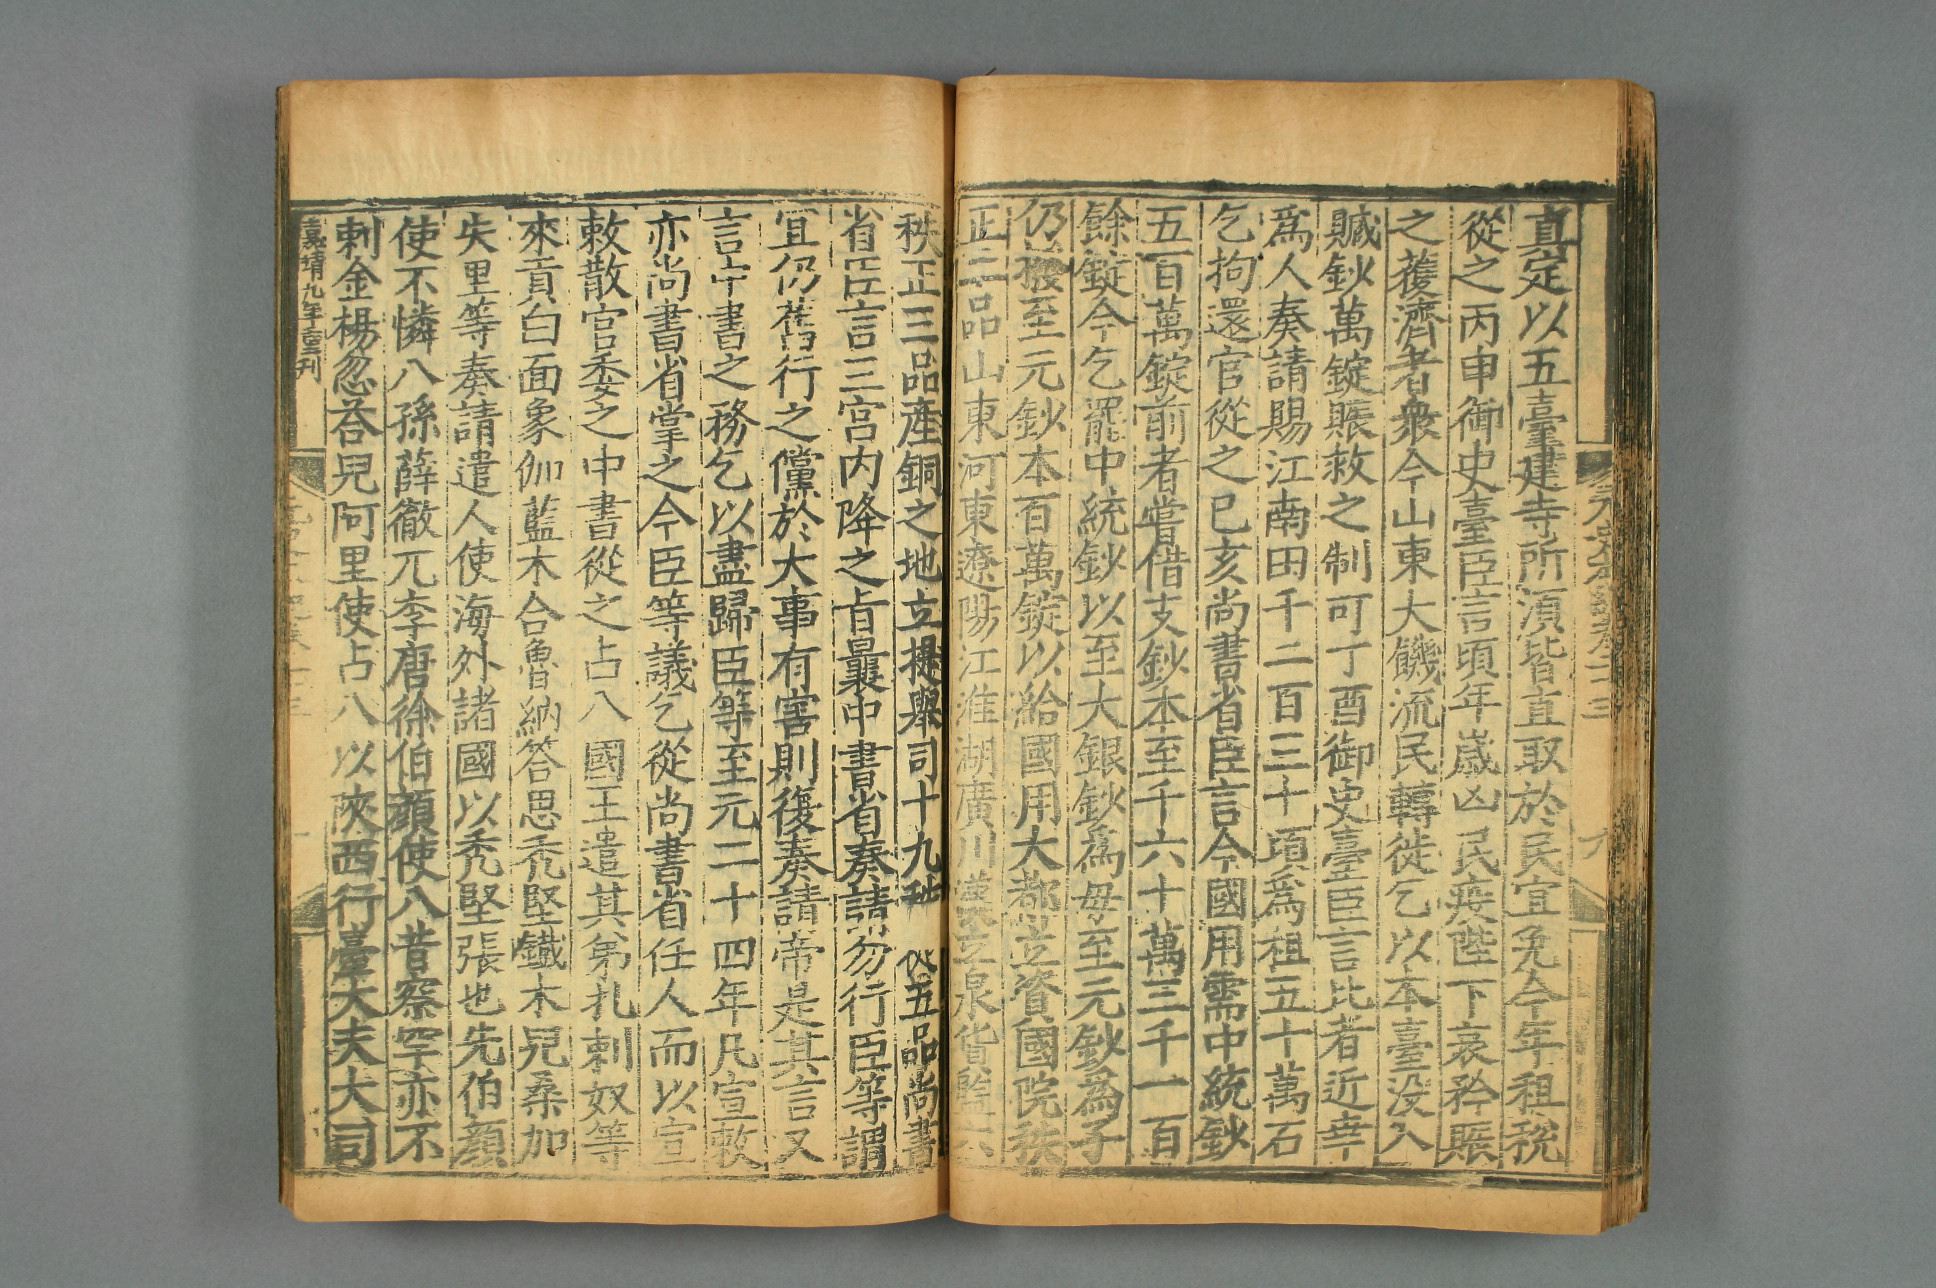 真定以五臺建寺所須皆直取於民宜免今年租稅
從之丙申御史臺臣言頃年歲凶民疫陛下哀矜賑
之獲濟者衆今山東大饑流民轉徙乞以本臺没入
贓鈔萬錠賑救之制可丁酉御史臺臣言比者近幸
爲人奏請賜江南田千二百三十頃爲租五十萬石
乞拘還官從之已亥尚書省臣言今國用需中統鈔
五百萬錠前者嘗借支鈔本至千六十萬三千一百
餘錠今乞罷中統鈔以至大銀鈔爲母至元鈔爲子
仍撥至元鈔本百萬錠以給國用大都立資國院秩
正二品山東河東遼陽江淮湖廣川漢立泉貨監六
秩正三品産銅之地立提舉司十九秩從五品尚書
省臣言三宮内降之旨曩中書省奏請勿行臣等謂
宜仍舊行之儻於大事有害則復奏請帝是其言又
言中書之務乞以盡歸臣等至元二十四年凡宣敕
亦尚書省掌之今臣等議乞從尚書省任人而以宣
敕散官委之中書從之占八國王遣其弟扎剌奴等
來貢白面象伽藍木合魯納答思禿堅鐵木兒桑加
失里等奏請遣人使海外諸國以禿堅張也先伯顏
使不憐八孫薛徹兀李唐徐伯顏使八昔察罕亦不
剌金楊忽荅兒阿里使占八以陝西行臺大夫大司
嘉靖九年重刊